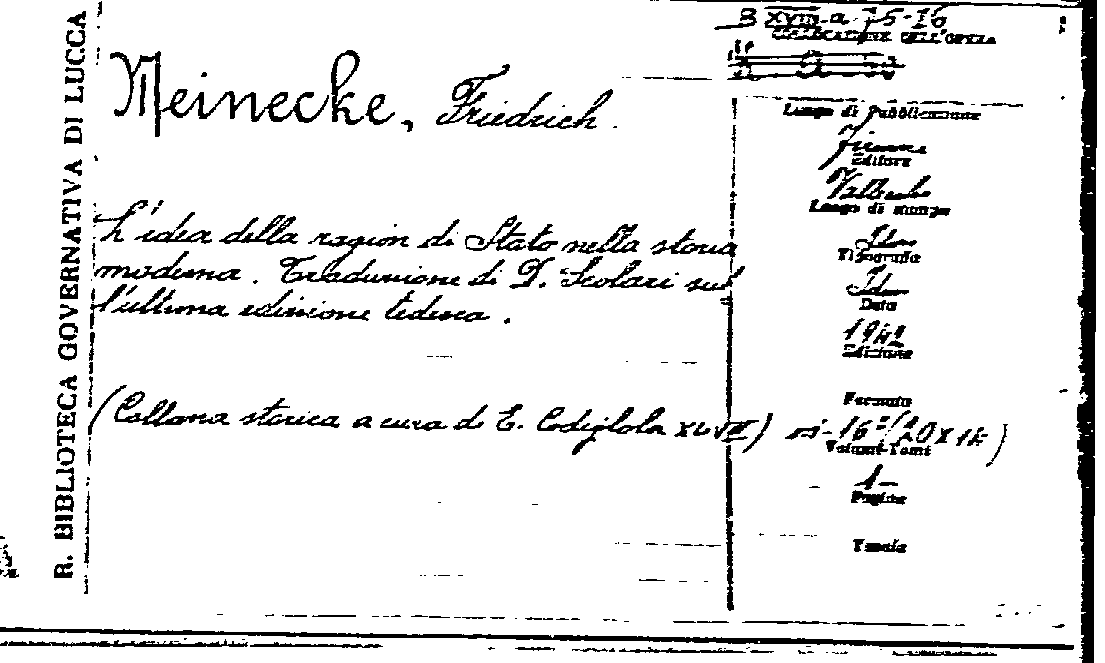 R. BIBLIOTECA GOVERNATIVA DI LUCCA
B XVIII a 75-16
COLLOCAZIONE DELL'OPERA
Meinecke, Friedrich.
L'idea della ragion di Stato nella storia
moderna. Traduzione di D. Scolari sul
l'ultima edizione tedesca.
(Collana storica a cura di E. Codignola XLVII)
Luogo di Pubblicazione
Firenze
Editore
Vallecchi
Luogo di stampa
Idem
Tipografia
Idem
Data
1942
Edizione
Formato
in-16° (20x14)
Volumi-Tomi
1-
Pagine
Tavole